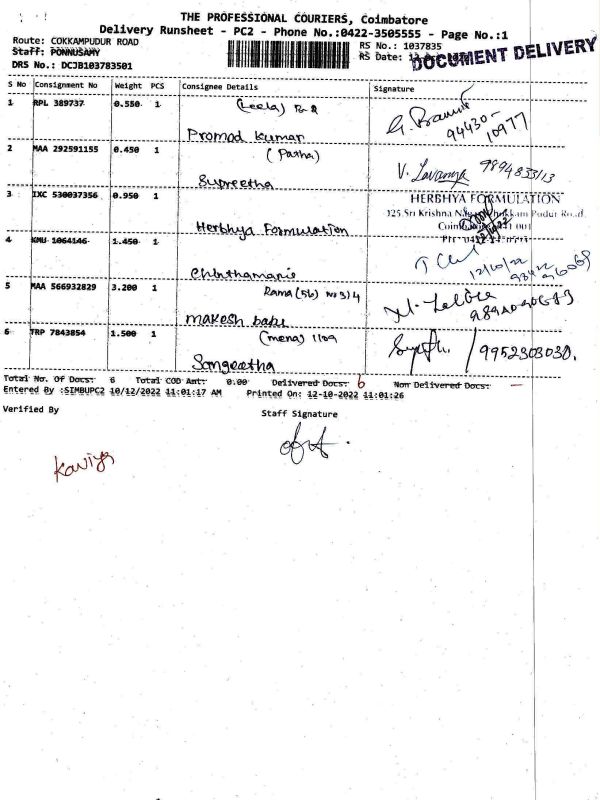 THE PROFESSIONAL COURIERS, Coimbatore
Delivery Runsheet - PC2 - Phone No.:0422-3505555 - Page No.:1
Route: COKKAMPUDUR ROAD
RS No.: 1037835
Staff: PONNUSAMY
RS Date:
DOCUMENT DELIVERY
DRS No.: DCJB103783501
S No Consignment No Weight PCS Consignee Details Signature
1 RPL 389737 0.550 1 (Leela)
Promod Kumar
94430-
10977
2 MAA 292591155 0.450 1 (Patha)
Supreetha
V. Lavanya
3 IXC 530037356 0.950 1
Herbhya Formulation
HERBHYA FORMULATION
325,Sri Krishna Pudur Road,
4 KMU 1064146 1.450 1
Chinthamanie
12/10/22
5 MAA 566932829 3.200 1 Rama (56)
makesh babu
6 TRP 7843854 1.500 1 (mena) 1109
Sangeetha
9952303030.
Total No. Of Docs: 6 Total COD Amt: 0.00 Delivered Docs: 6 Non Delivered Docs: —
Entered By :SIMBUPC2 10/12/2022 11:01:17 AM Printed On: 12-10-2022 11:01:26
Verified By
Staff Signature
Kaviya